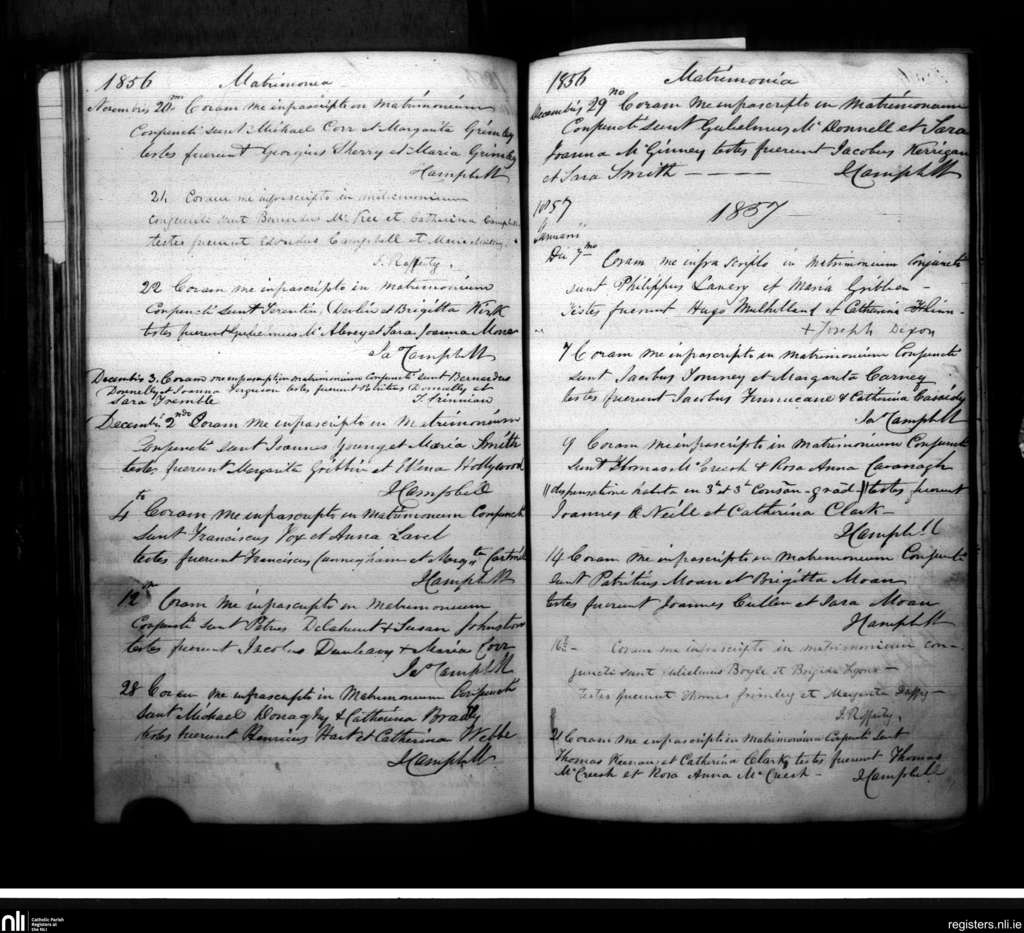 1856 Matrimonia
Novembris 20mo Coram me infrascripto in matrimonium
Conjuncti sunt Michael Corr et Margarita Grimley
testes fuerunt Georgius Sherry et Maria Grimley
J Campbell
21. Coram me infrascripto in matrimonium
conjuncti sunt Bernardus McKee et Catharina Campbell
testes fuerunt Edvardus Campbell et Maria
J. Rafferty.
22 Coram me infrascripto in matrimonium
Conjuncti sunt Terentius Devlin et Brigitta Kirk
testes fuerunt Gulielmus McAlevey et Sara Joanna
Ja Campbell
Decembris 3. Coram me infrascripto in matrimonium conjuncti sunt Bernardus
Donnelly et Joanna Ferguson testes fuerunt Patritius Donnelly et
Sara Tremble
Decembris 2ndo Coram me infrascripto in Matrimonium
Conjuncti sunt Joannes Young et Maria Smith
testes fuerunt Margarita Gribbin et Elena Hollywood
J Campbell
4to Coram me infrascripto in Matrimonium Conjuncti
sunt Franciscus Fox et Anna Lavel
testes fuerunt Franciscus Cunnigham et Margta
J Campbell
12 Coram me infrascripto in Matrimonium
Conjuncti sunt Petrus Delahunt & Susan Johnston
testes fuerunt Jacobus Dunleavy & Maria Corr
Ja Campbell
28 Coram me infrascripto in Matrimonium Conjuncti
sunt Michael Donaghy & Catherina Bradly
testes fuerunt Henricus Hart et Catherina Webbe
J Campbell
1856 Matrimonia
Decembris 29no Coram me infrascripto in Matrimonium
Conjuncti sunt Gulielmus McDonnell et Sara
Joanna McGinney testes fuerunt Jacobus Kerrigan
et Sara Smith - - - - J Campbell
1857 1857
Januarii
Die 7mo Coram me infra scripto in matrimonium conjuncti
sunt Philippus Lavery et Maria Gribbin -
Testes fuerunt Hugo Mulholland et Catherina
+ Joseph Dixon
7 Coram me infrascripto in matrimonium Conjuncti
sunt Jacobus Tominey et Margarita Carney
testes fuerunt Jacobus Finnucane & Catherina Cassidy
Ja Campbell
9 Coram me infrascripto in Matrimonium Conjuncti
sunt Thomas McCreesh & Rosa Anna Cavanagh
|| dispensatione habita in 3o et 3o Consan - grad - || testes fuerunt
Joannes O Neill et Catherina Clark -
J Campbell
14 Coram me infrascripto in Matrimonium Conjuncti
sunt Patritius Moan et Brigitta Moan
testes fuerunt Joannes Cullen et Sara Moan
J Campbell
16 - Coram me infrascripto in matrimonium con-
juncti sunt Gulielmus Boyle et Brigida
testes fuerunt Thomas Grimley et Margarita Duffy -
J. Rafferty.
21 Coram me infrascripto in Matrimonium Conjuncti sunt
Thomas Keenan et Catherina Clark, testes fuerunt Thomas
McCreesh et Rosa Anna McCreesh - J Campbell
nli
Catholic Parish
Registers at
the NLI
registers.nli.ie